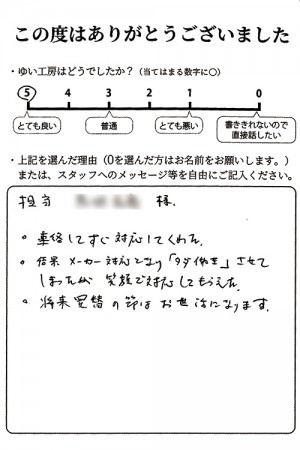 この度はありがとうございました
・ゆい工房はどうでしたか？（当てはまる数字に○）
5 4 3 2 1 0
とても良い 普通 とても悪い 書ききれないので直接話したい
・上記を選んだ理由（0を選んだ方はお名前をお願いします。）
または、スタッフへのメッセージ等を自由にご記入ください。
担当 様.
。連絡してすぐ対応してくれた。
。結果 メーカー対応となり「タダ働き」させて
しまったが 笑顔で対応してもらえた。
。将来買替の節はお世話になります。